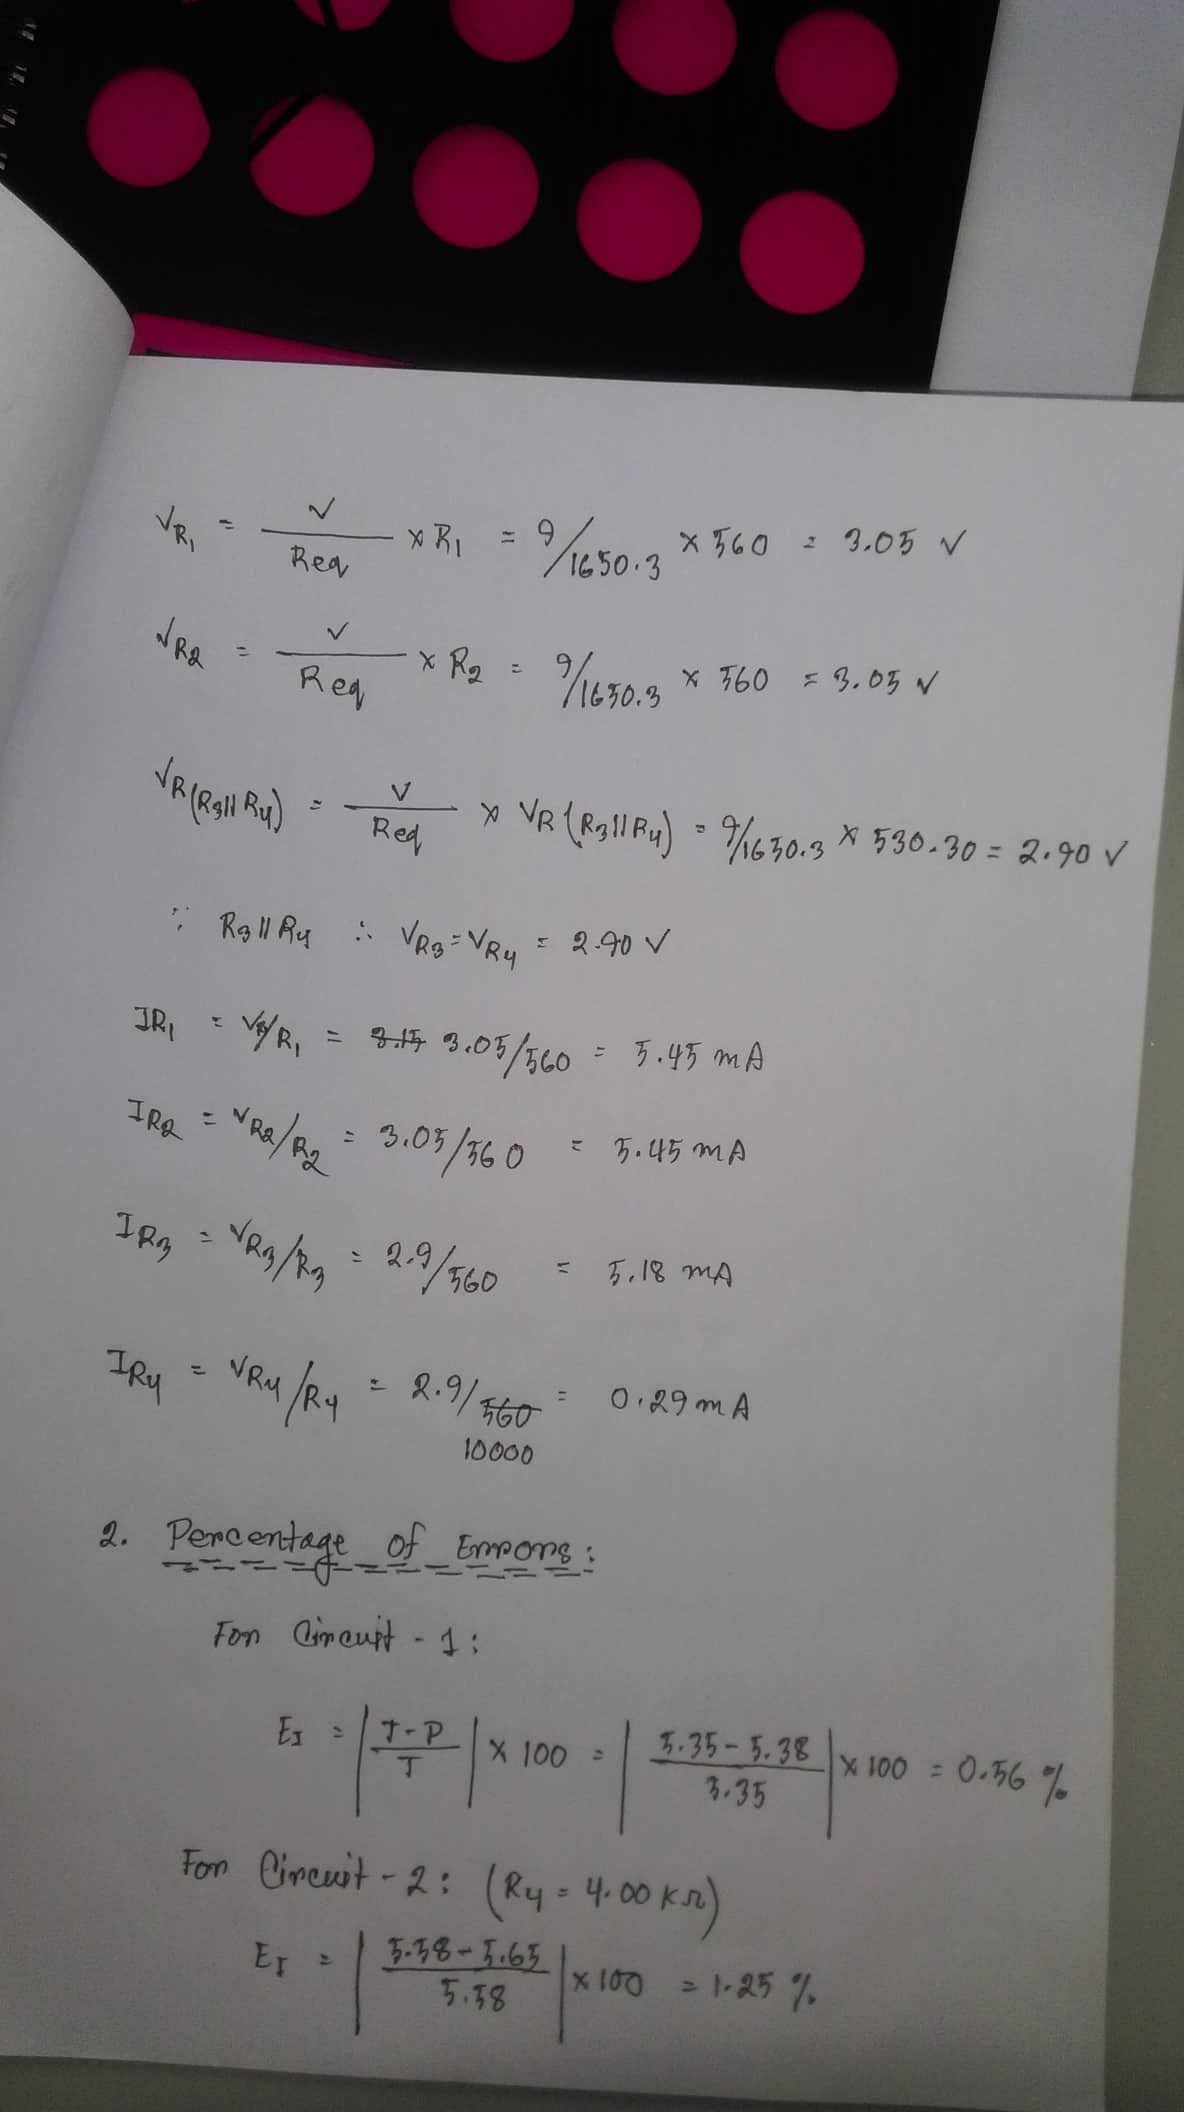 V_R1 = V/Req × R1 = 9/1650.3 × 560 = 3.05 V
V_R2 = V/Req × R2 = 9/1650.3 × 560 = 3.05 V
V_R(R3||R4) = V/Req × V_R(R3||R4) = 9/1650.3 × 530.30 = 2.90 V
∵ R3||R4 ∴ V_R3 = V_R4 = 2.90 V
I_R1 = V/R1 = 3.15 3.05/560 = 5.45 mA
I_R2 = V_R2/R2 = 3.05/560 = 5.45 mA
I_R3 = V_R3/R3 = 2.9/560 = 5.18 mA
I_R4 = V_R4/R4 = 2.9/560 = 0.29 mA
10000
2. Percentage of Errors:
For Circuit - 1:
E_I = |T-P/T| × 100 = |5.35 - 5.38/3.35| × 100 = 0.56 %
For Circuit - 2: (R4 = 4.00 KΩ)
E_I = |5.58 - 5.65/5.58| × 100 = 1.25 %